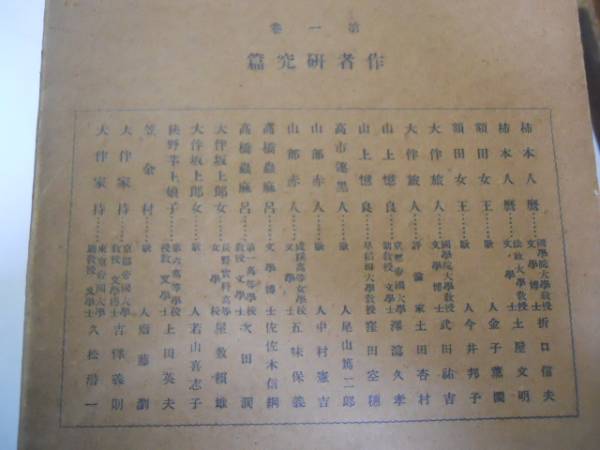 第一卷
作者研究篇
柿本人麿……國學院大學教授 文學博士 折口信夫
柿本人麿……法政大學教授 文學士 土屋文明
額田女王……歌人 金子薫園
額田女王……歌人 今井邦子
大伴旅人……國學院大學教授 文學博士 武田祐吉
大伴旅人……評論家 土田杏村
山上憶良……京都帝國大學助教授 澤瀉久孝
山上憶良……早稻田大學教授 窪田空穗
高市連黑人……歌人 尾山篤二郎
山部赤人……歌人 中村憲吉
山部赤人……成蹊高等女學校 文學士 五味保義
高橋蟲麻呂……文學博士 佐佐木信綱
高橋蟲麻呂……第一高等學校教授 文學士 次田潤
大伴坂上郎女……長野實科高等女學校 屋敷頼雄
大伴坂上郎女……歌人 若山喜志子
狹野茅上娘子……第六高等學校教授 文學士 上田英夫
笠金村……歌人 齋藤瀏
大伴家持……京都帝國大學教授 文學博士 吉澤義則
大伴家持……東京帝國大學助教授 文學士 久松潛一